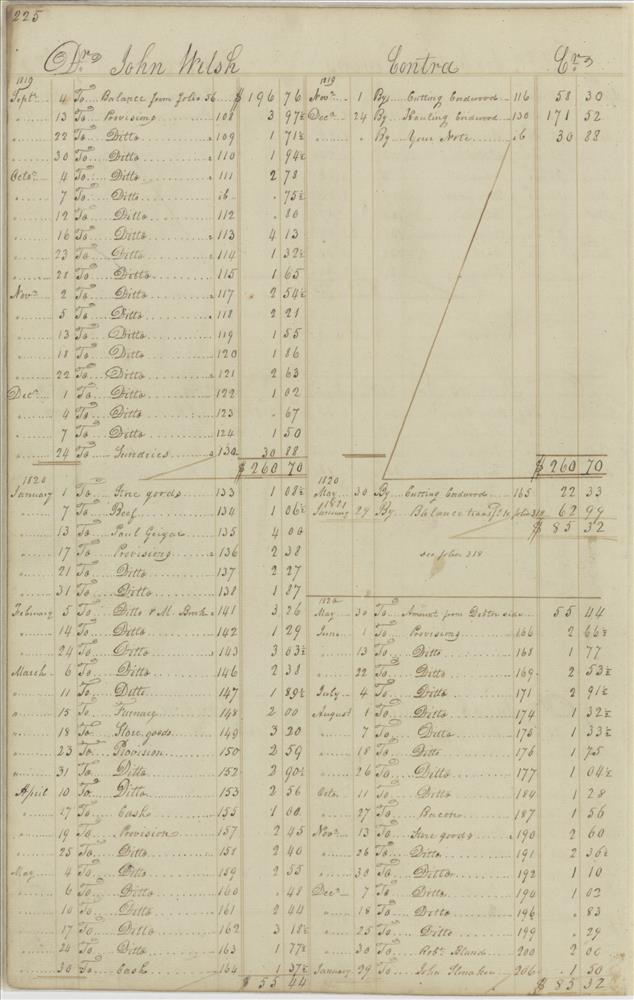 225
Dr. John Welsh
1819
Sept. 4 To Balance from folio 56 $ 196 76
" 13 To Provisions 108 3 97½
" 22 To Ditto 109 1 71½
" 30 To Ditto 110 1 94½
Octo. 4 To Ditto 111 2 78
" 7 To Ditto ib . 75½
" 12 To Ditto 112 . 86
" 16 To Ditto 113 4 13
" 23 To Ditto 114 1 32½
" 28 To Ditto 115 1 65
Nov. 2 To Ditto 117 2 54½
" 5 To Ditto 118 2 21
" 13 To Ditto 119 1 55
" 18 To Ditto 120 1 86
" 22 To Ditto 121 2 63
Dec. 1 To Ditto 122 1 02
" 4 To Ditto 123 . 67
" 7 To Ditto 124 1 50
" 24 To Sundries 130 30 88
$ 260 70
1820
January 1 To Store goods 133 1 08½
" 7 To Beef 134 1 06½
" 13 To Paul Geiger 135 4 00
" 17 To Provisions 136 2 38
" 21 To Ditto 137 2 27
" 31 To Ditto 138 1 87
February 5 To Ditto & M. 141 3 26
" 14 To Ditto 142 1 29
" 24 To Ditto 143 3 63½
March 6 To Ditto 146 2 38
" 11 To Ditto 147 1 89½
" 15 To Furnace 148 2 00
" 18 To Store goods 149 3 20
" 23 To Provision 150 2 59
" 31 To Ditto 152 2 90½
April 10 To Ditto 153 2 56
" 17 To Cash 155 1 00
" 19 To Provision 157 2 45
" 25 To Ditto 158 2 40
May 4 To Ditto 159 2 55
" 6 To Ditto 160 . 48
" 10 To Ditto 161 2 44
" 17 To Ditto 162 3 18½
" 24 To Ditto 163 1 77½
" 30 To Cash 164 1 37½
$ 55 44
Contra Cr.
1819
Nov. 1 By Cutting Cordwood 116 58 30
Dec. 24 By Hauling Cordwood 130 171 52
" " By Your Note ib 30 88
$ 260 70
1820
May 30 By Cutting Cordwood 165 22 33
1821
January 29 By Balance transf. to folio 318 62 99
$ 85 32
see folio 318
1820
May 30 To Amount from Debtor side 55 44
June 1 To Provisions 166 2 66½
" 13 To Ditto 168 1 77
" 22 To Ditto 169 2 53½
July 4 To Ditto 171 2 91½
August 1 To Ditto 174 1 32½
" 7 To Ditto 175 1 33½
" 18 To Ditto 176 1 75
" 26 To Ditto 177 1 04½
Octo. 11 To Ditto 184 1 28
" 27 To Bacon 187 1 56
Nov. 13 To Store goods 190 2 60
" 26 To Ditto 191 2 36½
" 30 To Ditto 192 1 10
Dec. 7 To Ditto 194 1 02
" 18 To Ditto 196 . 83
" 25 To Ditto 199 . 29
" 30 To Robt. Bland 200 2 00
January 29 To John 206 1 50
$ 85 32